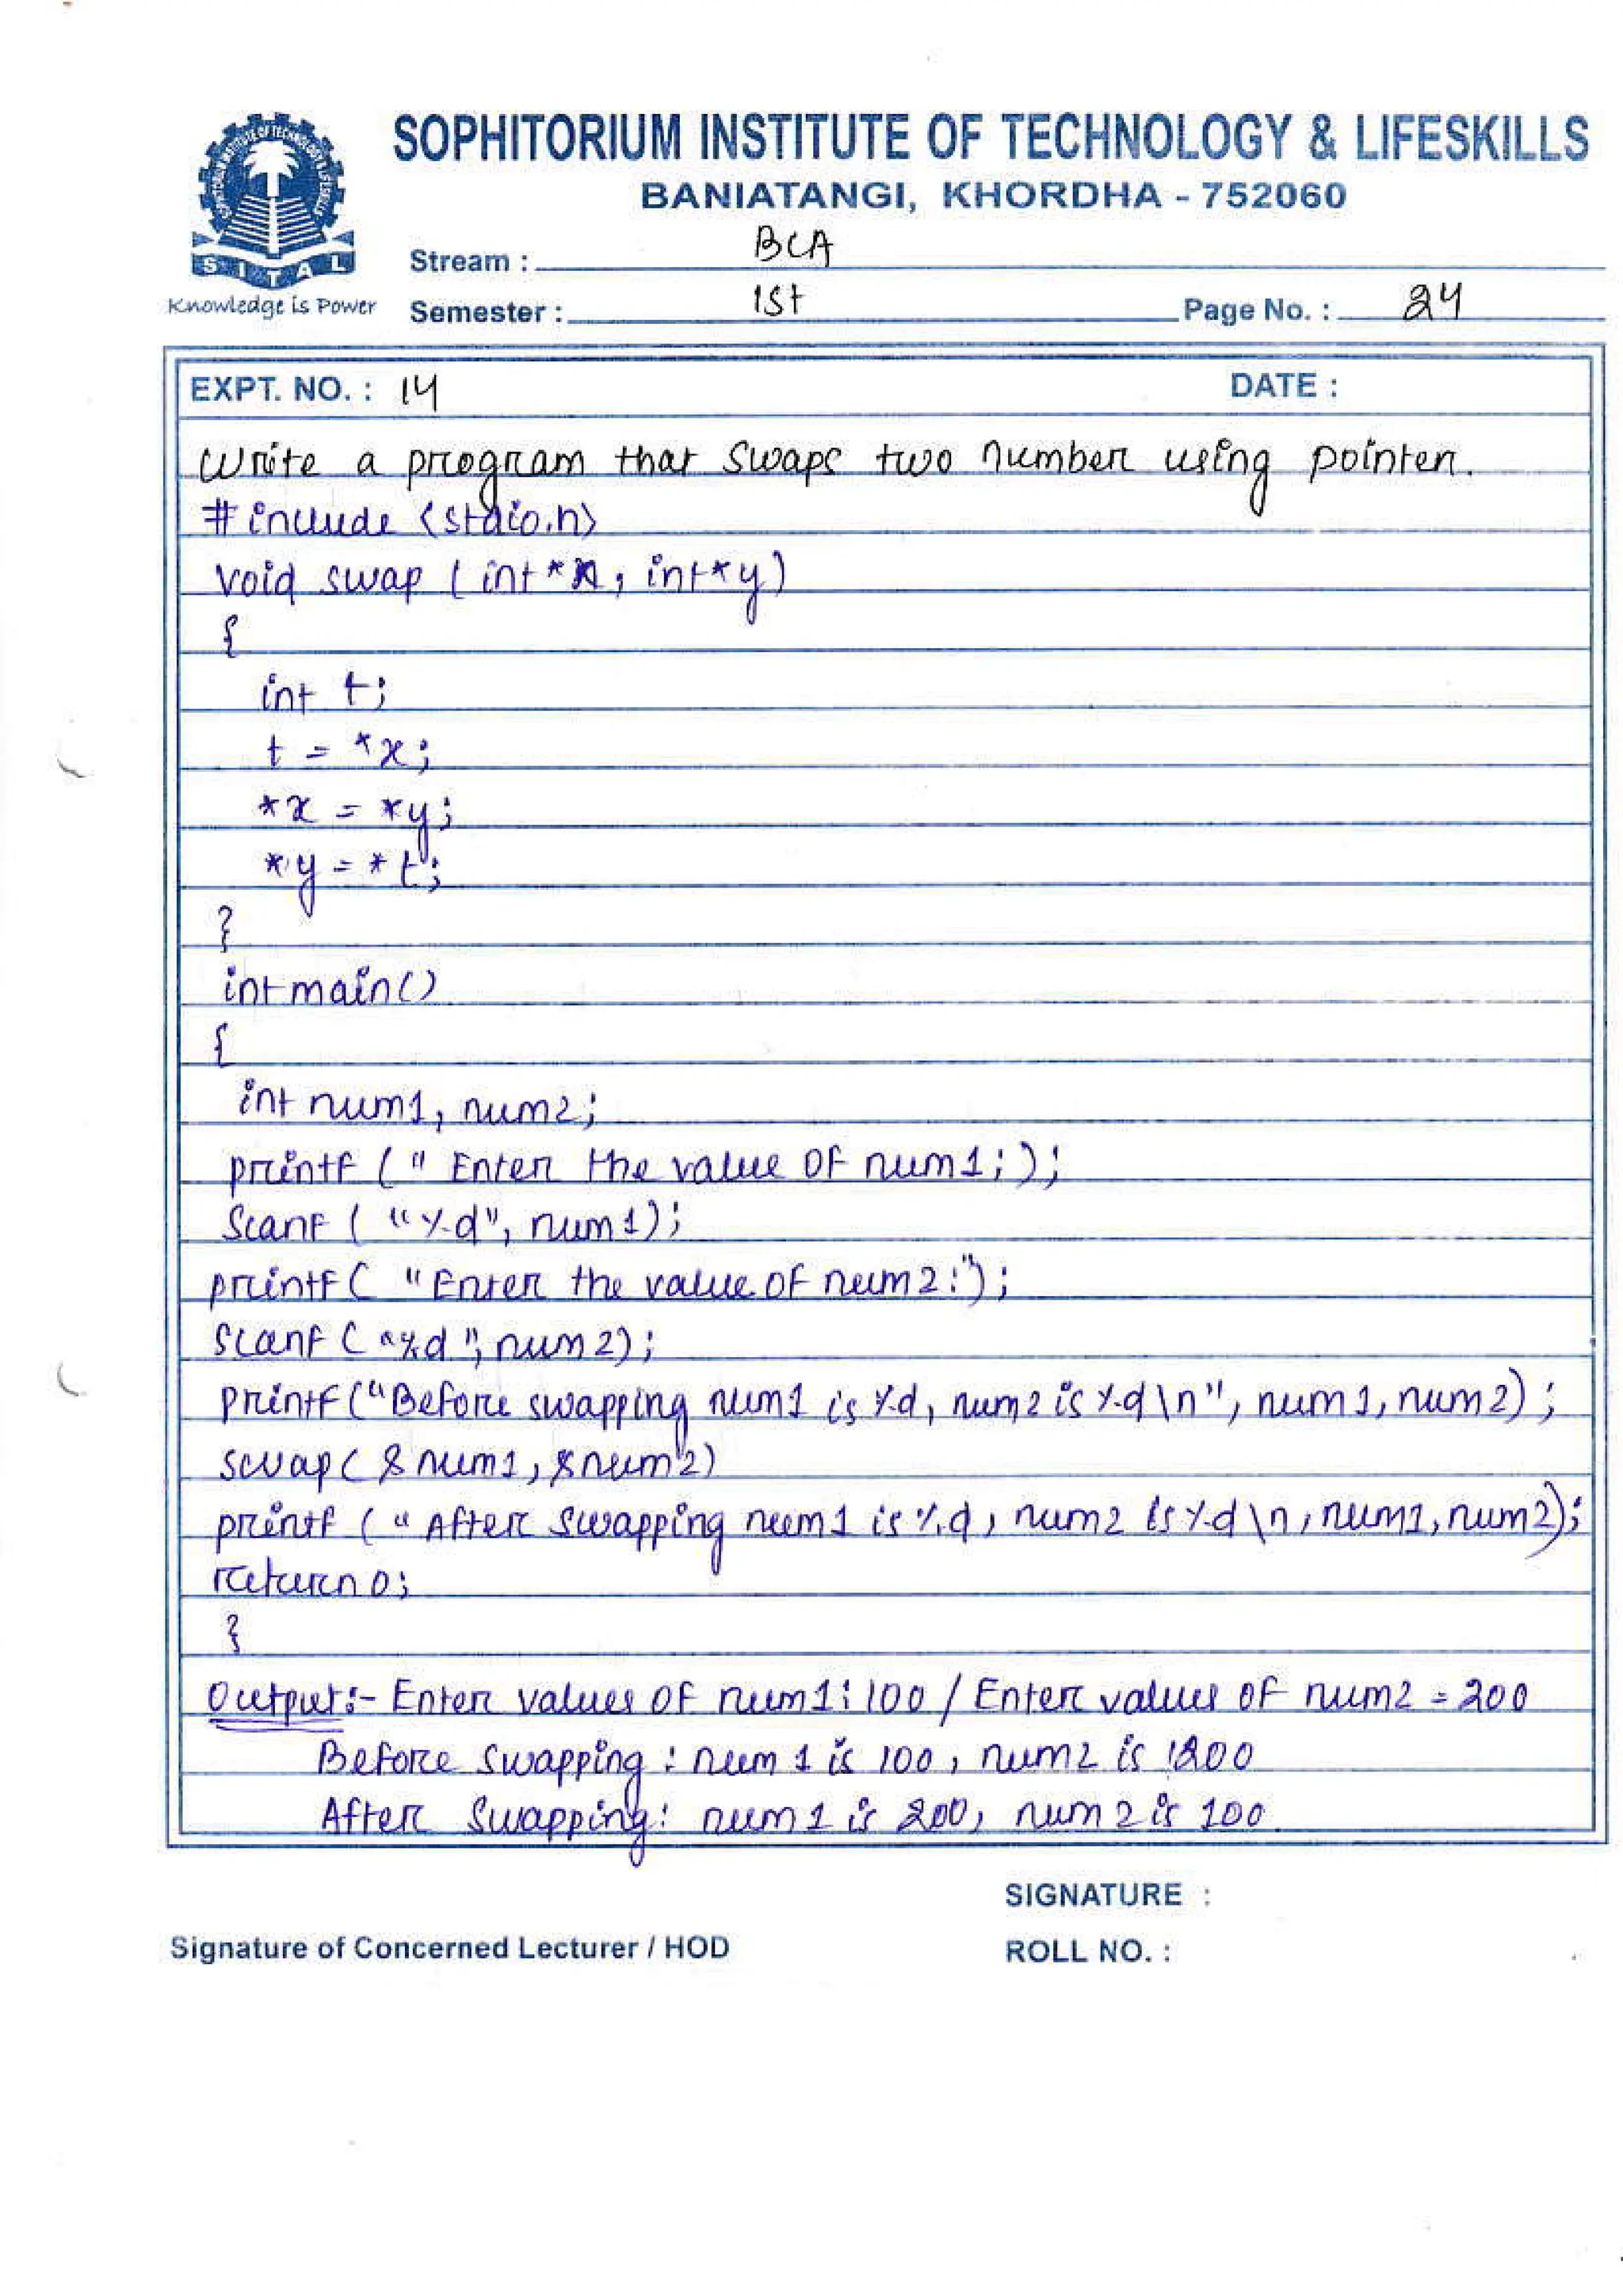 SOPHITORIUM INSTITUTE OF TECHNOLOGY & LIFESKILLS
BANIATANGI, KHORDHA - 752060
SITAL
Knowledge is Power
Stream : BCA
Semester : 1st Page No. : 24
EXPT. NO. : 14 DATE :
Write a program that swaps two number using pointer.
#include <stdio.h>
void swap (int *x, int *y)
{
int t;
t = *x;
*x = *y;
*y = *t;
}
int main()
{
int num1, num2;
printf (" Enter the value of num1 ; );
Scanf ( "%d", num1);
printf ( "Enter the value of num2 :");
Scanf ( "%d", num2);
printf ("Before swapping num1 is %d, num2 is %d \n", num1, num2);
swap( & num1, & num2)
printf ( " After swapping num1 is %d, num2 is %d \n, num1, num2);
return 0;
}
Output :- Enter values of num1 : 100 / Enter values of num2 = 200
Before Swapping : num 1 is 100, num2 is 200
After Swapping : num 1 is 200, num 2 is 100
SIGNATURE :
Signature of Concerned Lecturer / HOD ROLL NO. :